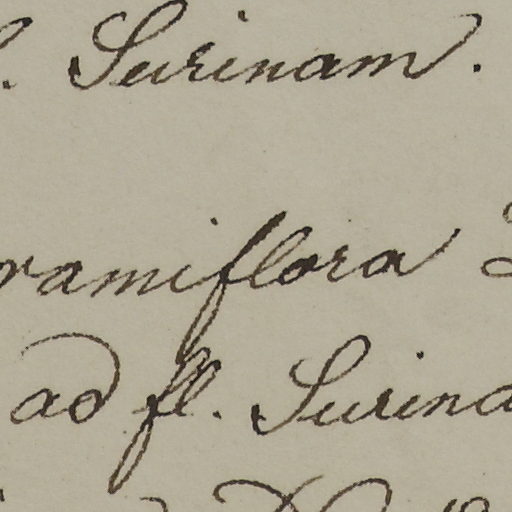 . Surinam.
ramiflora
ad fl. Surina